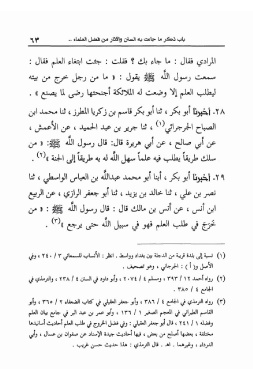 باب ذكر ما جاءت به السنن والآثار من فضل العلماء .. ٦٣
المرادي فقال : ما جاء بك ؟ فقلت : جئت ابتغاء العلم فقال :
سمعت رسول الله ﷺ يقول : « ما من رجل خرج من بيته
ليطلب العلم إلا وضعت له الملائكة أجنحتها رضى لما يصنع » .
٢٨ـ أخبرنا أبو بكر ، ثنا أبو بكر قاسم بن زكريا المطرز ، ثنا محمد ابن
الصباح الجرجرائي (١) ، ثنا جرير بن عبد الحميد ، عن الأعمش ،
عن أبي صالح ، عن أبي هريرة قال: قال رسول الله ﷺ : « من
سلك طريقاً يطلب فيه علماً سهل الله له به طريقاً إلى الجنة » (٢) .
٢٩ـ أخبرنا أبو بكر ، أبنا أبو محمد عبدالله بن العباس الواسطي ، ثنا
نصر بن علي ، ثنا خالد بن يزيد ، ثنا أبو جعفر الرازي ، عن الربيع
ابن أنس ، عن أنس بن مالك قال : قال رسول الله ﷺ : « من
خرج في طلب العلم فهو في سبيل الله حتى يرجع » (٣) .
(١) نسبة إلى بلدة قريبة من الدجلة بين بغداد وواسط . انظر : الأنساب للسمعاني ٣ / ٢٤٠ ، وفي
الأصل و( أ ) : الجرجاني ، وهو تصحيف .
(٢) رواه أحمد ١٢ / ٣٩٣ ، ومسلم ٤ / ٢٠٧٤ ، وأبو داود في السنن ٤ / ٢٣٨ ، والترمذي في
الجامع ٤ / ٣٨٠ .
(٣) رواه الترمذي في الجامع ٤ / ٣٨٦ ، وأبو جعفر العقيلي في كتاب الضعفاء ٢ / ٣٦٥ ، وأبو
القاسم الطبراني في المعجم الصغير ١ / ١٣٦ ، وأبو عمر بن عبد البر في جامع بيان العلم
وفضله ١ / ٢٤١ ، قال أبو جعفر العقيلي : وفي فضل الخروج في طلب العلم أحاديث أسانيدها
مختلفة ، بعضها أصلح من بعض ، فيها أحاديث جيدة الإسناد عن صفوان بن عسال ، وأبي
الدرداء ، وغيرهما . اهـ . قال الترمذي : هذا حديث حسن غريب .